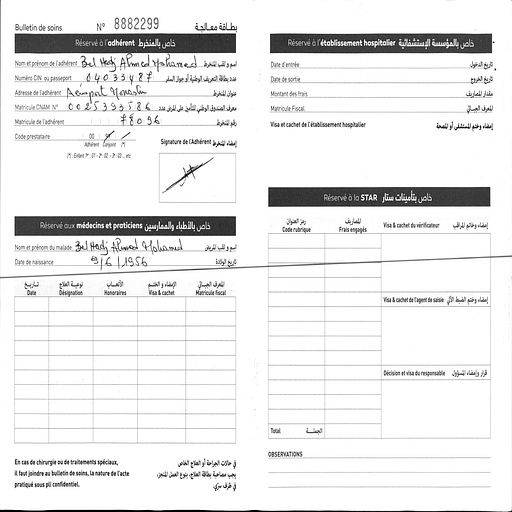 Bulletin de soins N° 8882299 بطاقة معالجة
Réservé à l'adhérent خاص بالمنخرط
Nom et prénom de l'adhérent Bel Hadj Ahmed Mohamed اسم و لقب المنخرط
Numéro CIN ou passeport 04033487 عدد بطاقة التعريف الوطنية أو جواز السفر
Adresse de l'adhérent Aéroport Monastir عنوان المنخرط
Matricule CNAM N°
Matricule de l'adhérent 78096 رقم المنخرط
Code prestataire 00 99
Adhérent Conjoint (*)
(*) : Enfant 1er : 01 - 2e : 02 - 3e : 03 ... etc
Signature de l'Adhérent إمضاء المنخرط
Réservé aux médecins et praticiens خاص بالأطباء والممارسين
Nom et prénom du malade Bel Hadj Ahmed Mohamed اسم و لقب المريض
Date de naissance 9/6/1956 تاريخ الولادة
تاريخ نوعية العلاج الأتعاب الإمضاء و الختم المعرف الجبائي
Date Désignation Honoraires Visa & cachet Matricule fiscal
En cas de chirurgie ou de traitements spéciaux,
il faut joindre au bulletin de soins, la nature de l'acte
pratiqué sous pli confidentiel.
في حالات الجراحة أو العلاج الخاص
يجب مصاحبة بطاقة العلاج، بنوع العمل المنجز،
في ظرف سري.
Réservé à l'établissement hospitalier خاص بالمؤسسة الإستشفائية
Date d'entrée تاريخ الدخول
Date de sortie تاريخ الخروج
Montant des frais مقدار المصاريف
Matricule Fiscal المعرف الجبائي
Visa et cachet de l'établissement hospitalier إمضاء وختم المستشفى أو المصحة
Réservé à la STAR خاص بتأمينات ستار
رمز العنوان المصاريف
Code rubrique Frais engagés
Visa & cachet du vérificateur إمضاء وخاتم المراقب
Visa & cachet de l'agent de saisie إمضاء وختم الضبط الآلي
Décision et visa du responsable قرار وإمضاء المسؤول
Total الجملة
OBSERVATIONS